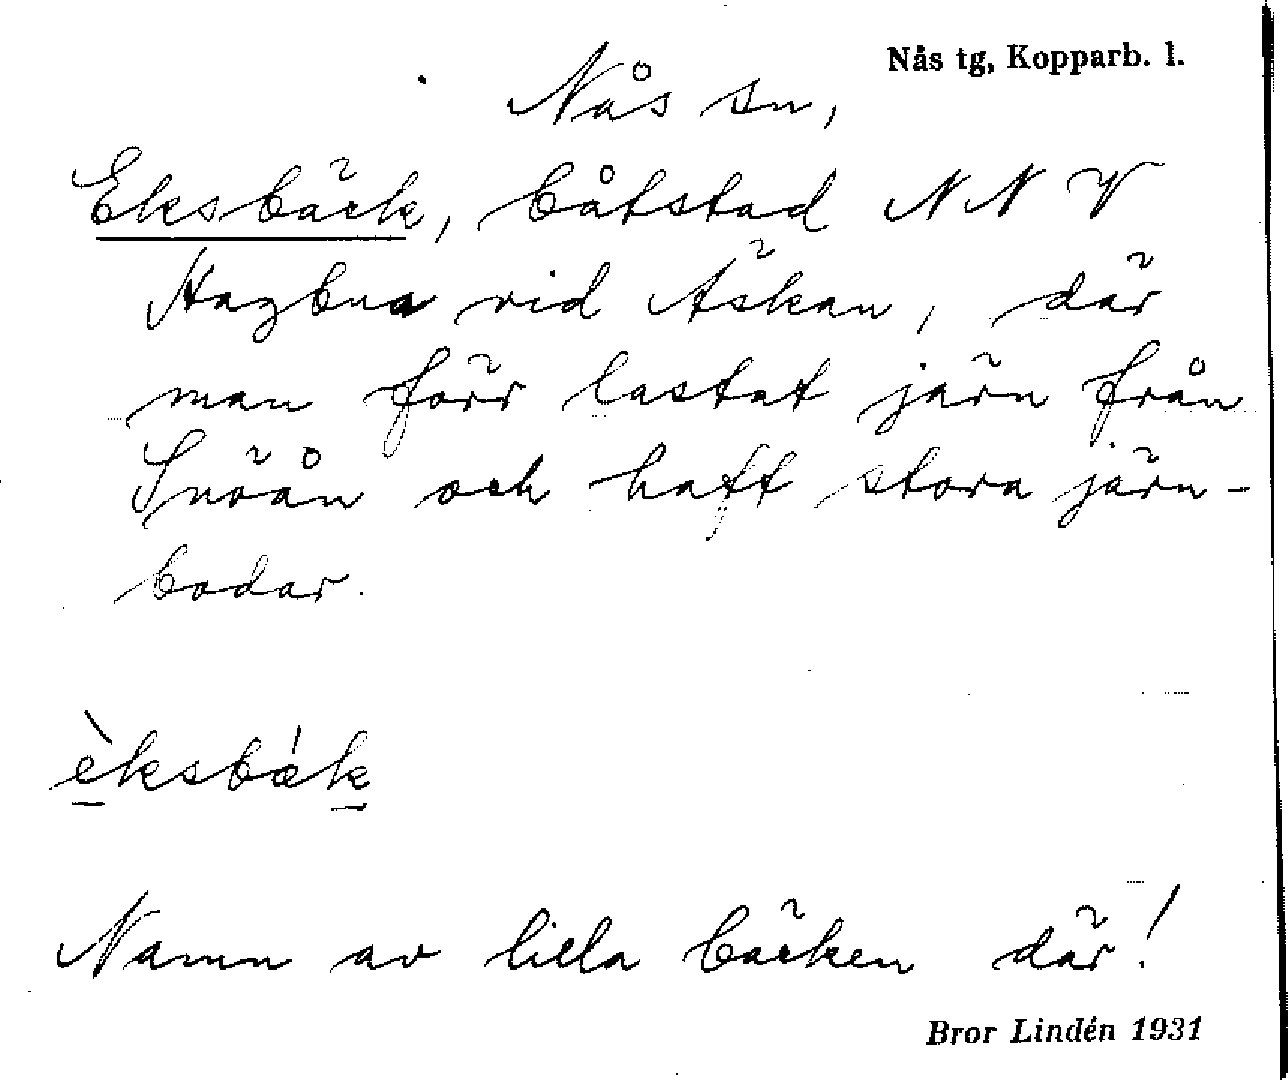 Nås tg, Kopparb. l.
Nås sn,
Eksbäck, båtstad NNV
Hagbua vid Äskan, där
man förr lastat järn från
Snöån och haft stora järn-
bodar.
èksbák
Namn av lilla bäcken där!
Bror Lindén 1931